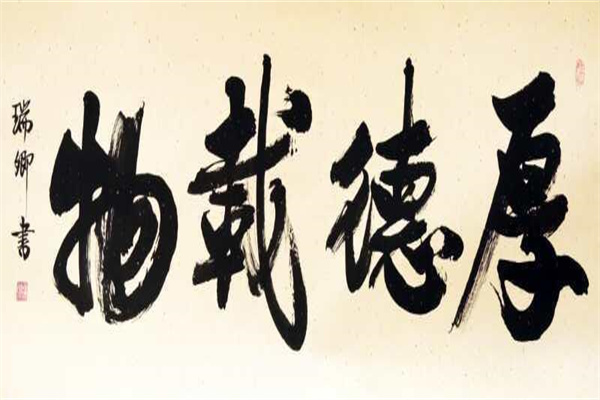 厚德載物
瑞卿書